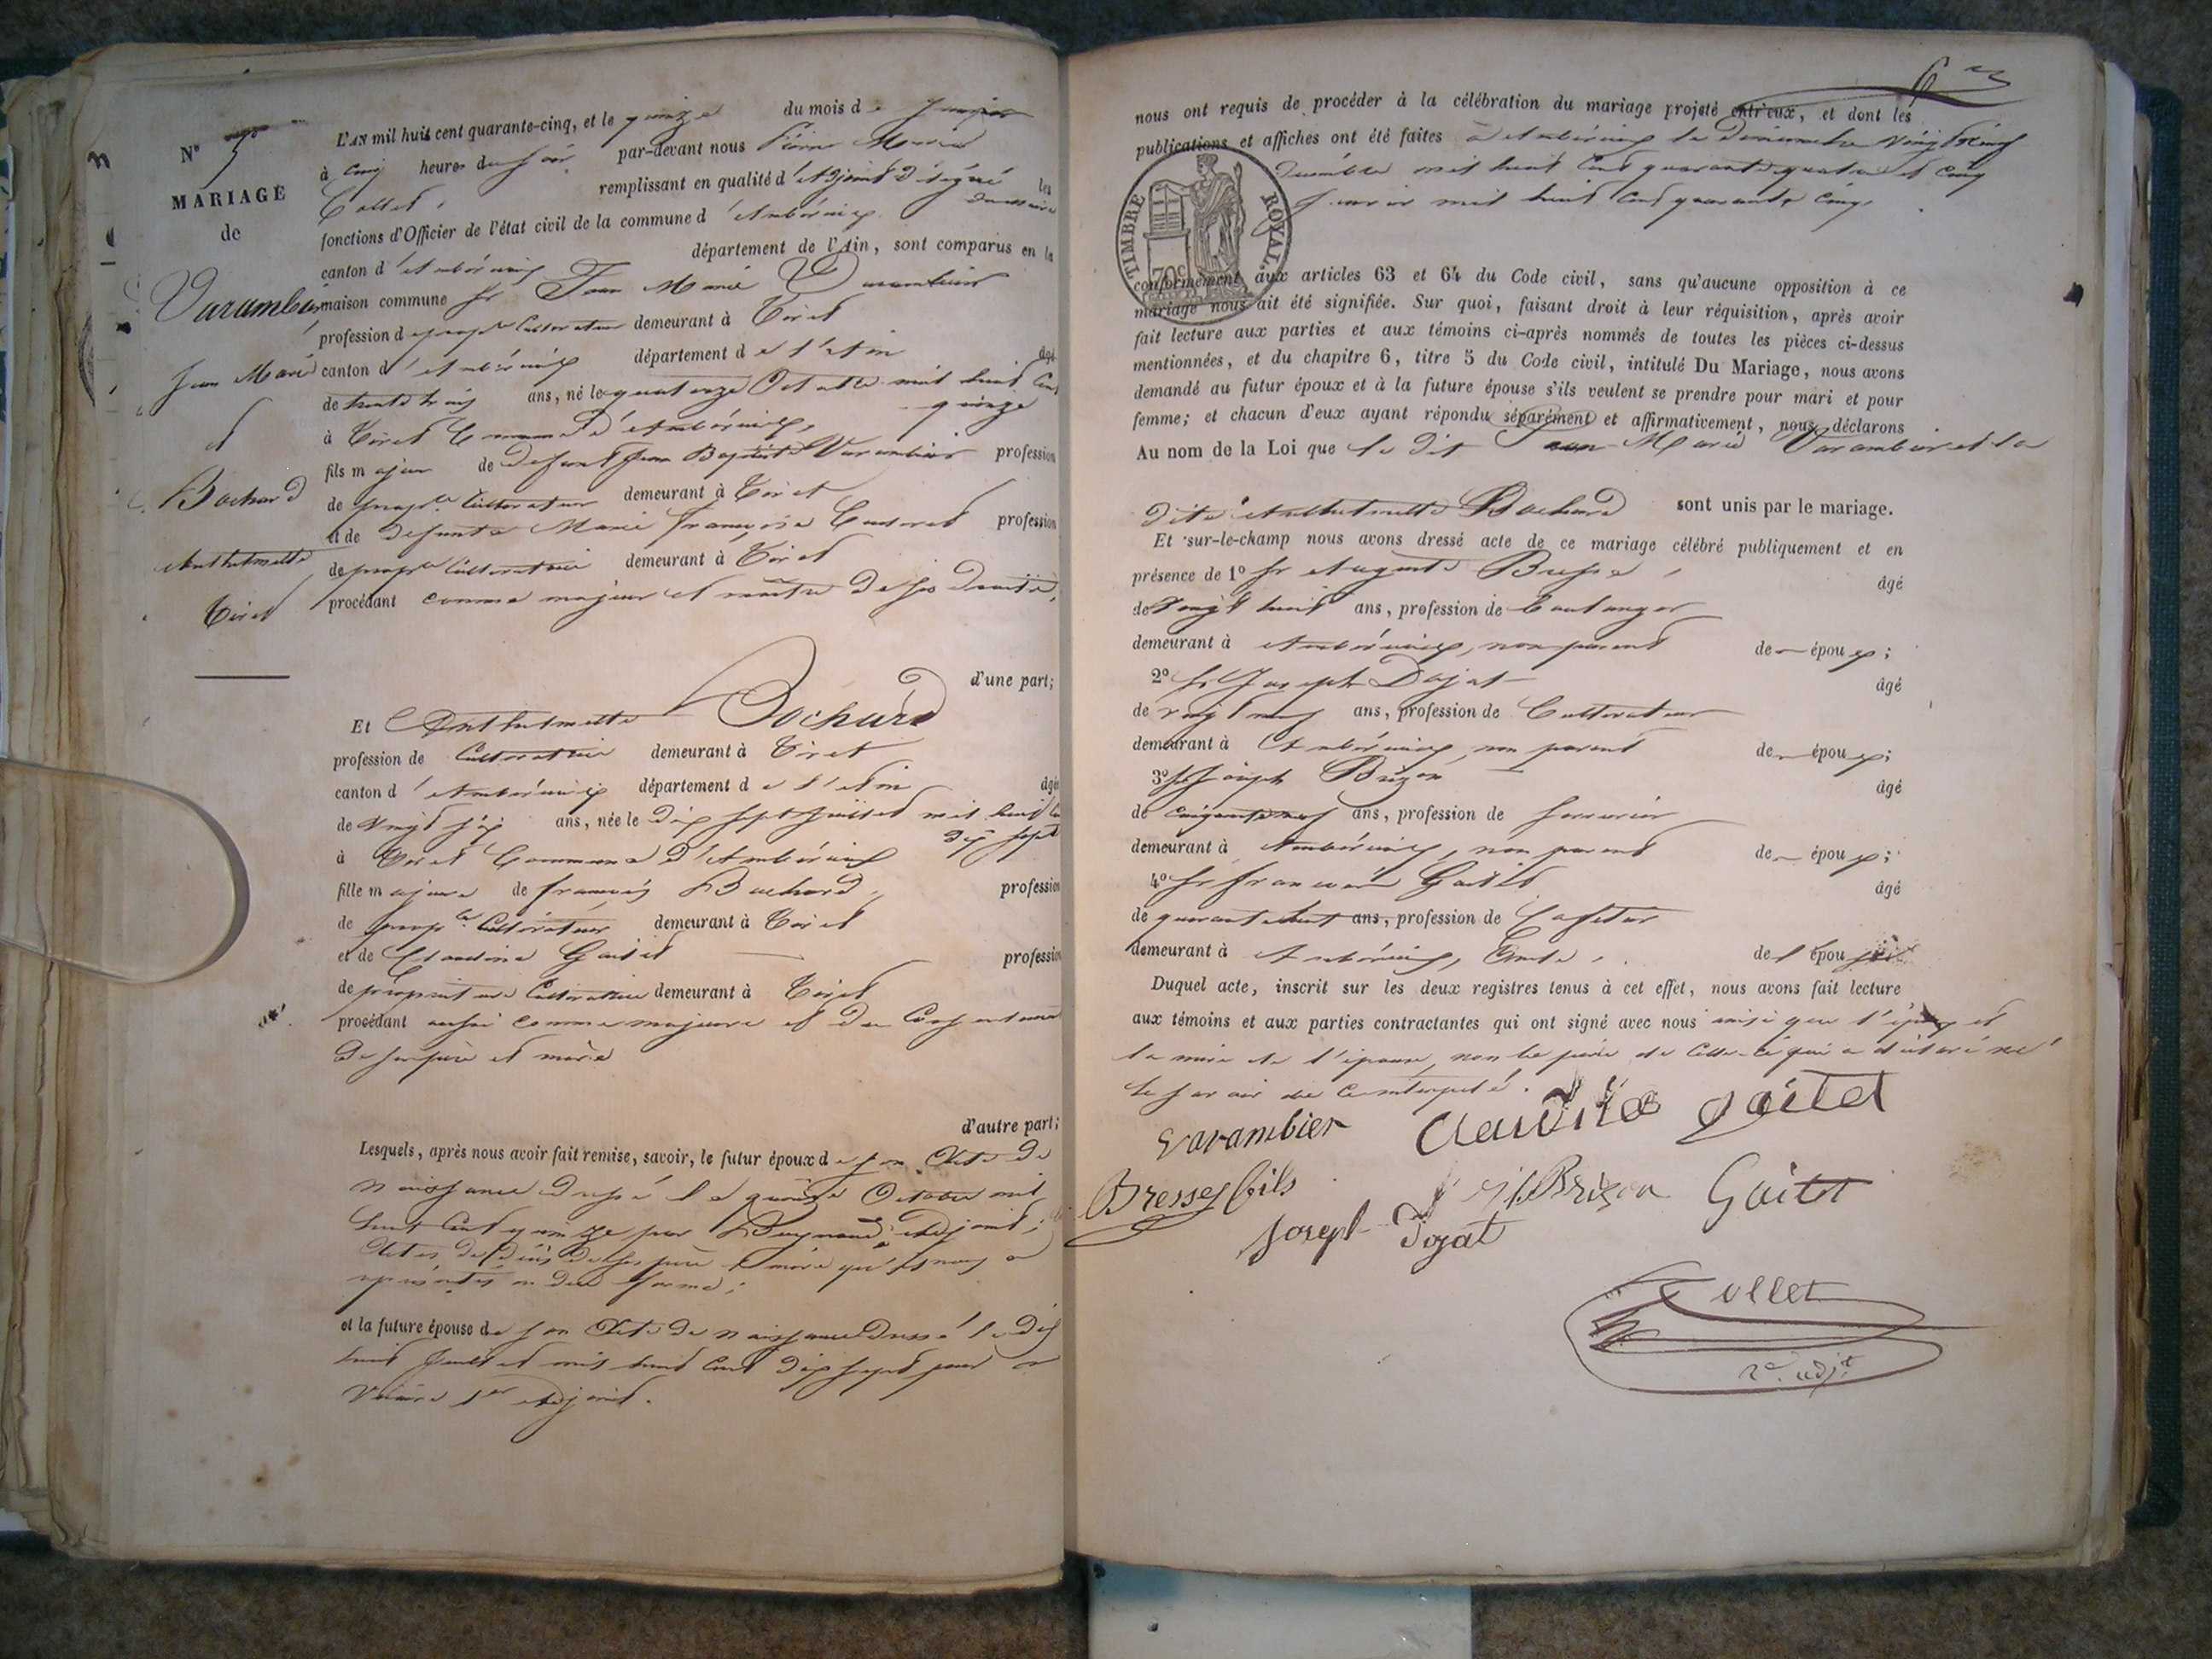 N° 5
MARIAGE
de
Varambier
Jean Marie
et
Bochard
Anthelmette
Tiret
L'AN mil huit cent quarante-cinq, et le quinze du mois de Janvier
à cinq heures du soir par-devant nous Pierre Marie
Collet, remplissant en qualité d'Adjoint délégué les
fonctions d'Officier de l'état civil de la commune d'Ambérieux
canton d'Ambérieux département de l'Ain, sont comparus en la
maison commune Sr Jean Marie Varambier
profession de propre Cultivateur demeurant à Tiret
canton d'Ambérieux département de l'Ain âgé
de trente trois ans, né le quatorze Octobre mil huit Cent
quinze
à Tiret Commune d'Ambérieux,
fils majeur de défunt Jean Baptiste Varambier profession
de propre Cultivateur demeurant à Tiret
et de défunte Marie françoise profession
de propre Cultivatrice demeurant à Tiret
procédant comme majeur et maître de ses droits,
d'une part;
Et Anthelmette Bochard
profession de Cultivatrice demeurant à Tiret
canton d'Ambérieux département de l'Ain âgée
de vingt sept ans, née le dix sept Juillet mil huit Cent
dix sept
à Tiret Commune d'Ambérieux
fille majeure de françois Bochard, profession
de propre Cultivateur demeurant à Tiret
et de Claudine Gaitet profession
de propriétaire Cultivatrice demeurant à Tiret
procédant aussi comme majeure et du Consentement
de ses père et mère
d'autre part;
Lesquels, après nous avoir fait remise, savoir, le futur époux de son Acte de
naissance dressé le quinze Octobre mil
huit Cent quinze par Adjoint;
Actes de décès de ses père et mère qu'il nous a
représentés en due forme;
et la future épouse de son Acte de naissance dressé le dix
huit Juillet mil huit Cent dix sept par
1er Adjoint.
6
nous ont requis de procéder à la célébration du mariage projeté entr'eux, et dont les
publications et affiches ont été faites à Ambérieux le Dimanche vingt neuf
Décembre mil huit Cent quarante quatre et cinq
Janvier mil huit Cent quarante cinq.
TIMBRE ROYAL
70c
conformément aux articles 63 et 64 du Code civil, sans qu'aucune opposition à ce
mariage nous ait été signifiée. Sur quoi, faisant droit à leur réquisition, après avoir
fait lecture aux parties et aux témoins ci-après nommés de toutes les pièces ci-dessus
mentionnées, et du chapitre 6, titre 5 du Code civil, intitulé Du Mariage, nous avons
demandé au futur époux et à la future épouse s'ils veulent se prendre pour mari et pour
femme; et chacun d'eux ayant répondu séparément et affirmativement, nous déclarons
Au nom de la Loi que le dit Jean Marie Varambier et la
dite Anthelmette Bochard sont unis par le mariage.
Et sur-le-champ nous avons dressé acte de ce mariage célébré publiquement et en
présence de 1° Sr Auguste âgé
de vingt huit ans, profession de boulanger
demeurant à Ambérieux, non parent de époux;
2° Sr Joseph Dojat âgé
de vingt neuf ans, profession de Cultivateur
demeurant à Ambérieux, non parent de époux;
3° Sr Joseph Brizon âgé
de cinquante neuf ans, profession de Serrurier
demeurant à Ambérieux, non parent de époux;
4° Sr françois Gaitet âgé
de quarante huit ans, profession de Cafetier
demeurant à Ambérieux, Oncle de l'épouse
Duquel acte, inscrit sur les deux registres tenus à cet effet, nous avons fait lecture
aux témoins et aux parties contractantes qui ont signé avec nous ainsi que l'époux et
la mère de l'épouse, non le père de Celle-ci qui a déclaré ne
le savoir de ce interpellé.
varambier Claudine gaitet
Bresses fils Brizon Gaitet
Joseph Dojat
Collet
2e adjt